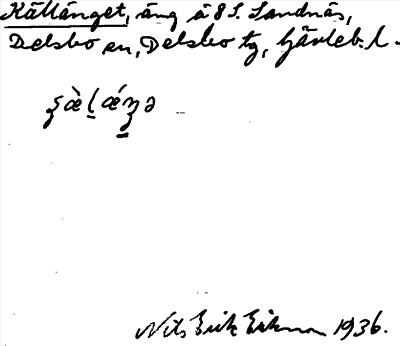 Källänget, äng å 8 S. Sandnäs,
Delsbo sn, Delsbo tg, Gävleb. l.
Nils Erik Ekman 1936.